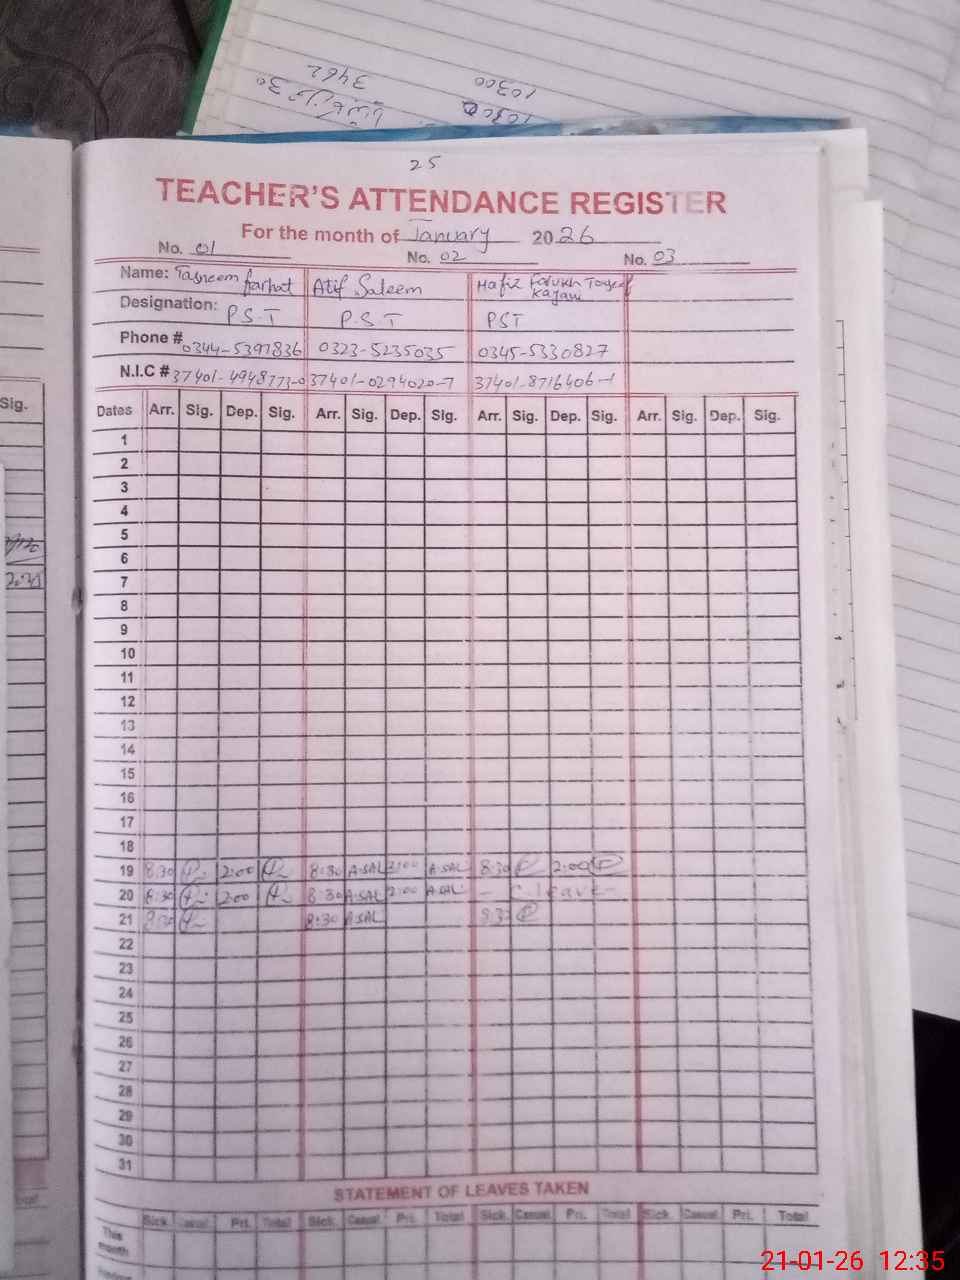 3462
10300
10300
25
TEACHER'S ATTENDANCE REGISTER
For the month of January 2026
No. 01 No. 02 No. 03
Name: Tasneem farhat Atif Saleem Hafiz
Designation: P.S.T P.S.T PST
Phone # 0344-5397836 0323-5235035 0345-5330827
N.I.C # 37401-4948773-0 37401-0294020-7 37401-8716406-1
Sig.
Dates Arr. Sig. Dep. Sig. Arr. Sig. Dep. Sig. Arr. Sig. Dep. Sig. Arr. Sig. Dep. Sig.
1
2
3
4
5
6
7
8
9
10
11
12
13
14
15
16
17
18
19 8:30 2:00 8:30 A.SAL 2:00 A.SAL 8:30 2:00
20 8:30 2:00 8:30 A.SAL 2:00 A.SAL - C.leave -
21 8:30 8:30 A.SAL 8:30
22
23
24
25
26
27
28
29
30
31
STATEMENT OF LEAVES TAKEN
Sick. Casual. Pri. Total Sick. Casual. Pri. Total Sick. Casual. Pri. Total Sick. Casual. Pri. Total
This
month
21-01-26 12:35